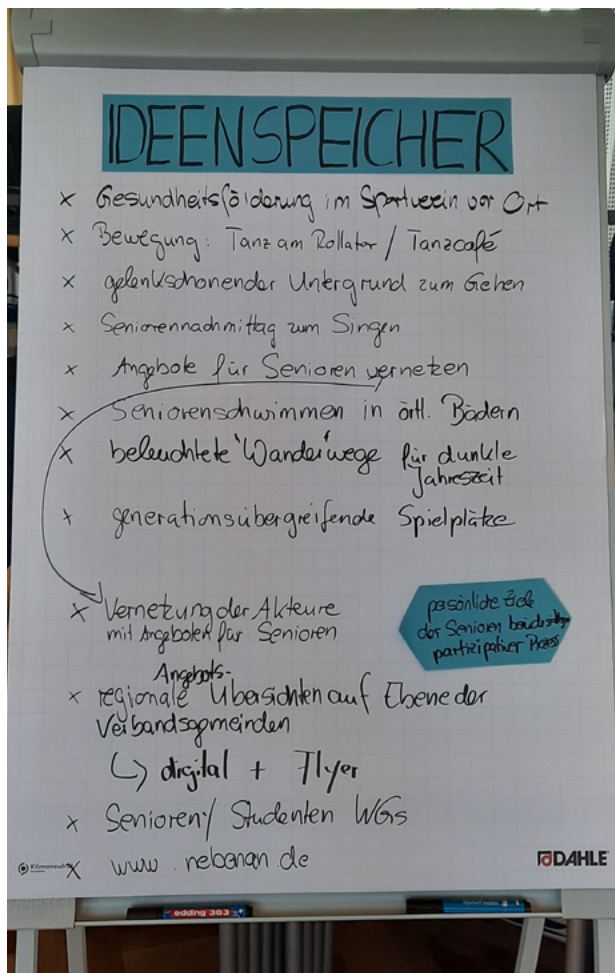 IDEENSPEICHER
x Gesundheitsförderung im Sportverein vor Ort
x Bewegung: Tanz am Rollator / Tanzcafé
x gelenkschonender Untergrund zum Gehen
x Seniorennachmittag zum Singen
x Angebote für Senioren vernetzen
x Seniorenschwimmen in örtl. Bädern
x beleuchtete "Wander"wege für dunkle
Jahreszeit
x generationsübergreifende Spielplätze
x Vernetzung der Akteure
mit Angeboten für Senioren
persönliche Ziele
der Senioren berücksichtigen
partizipativer Prozess
Angebots-
x regionale Übersichten auf Ebene der
Verbandsgemeinden
↳ digital + Flyer
x Senioren / Studenten WGs
x www.nebenan.de
DAHLE
edding 383